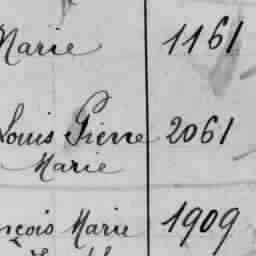 Marie 1161
Louis Pierre 2061
Marie
nçois Marie 1909